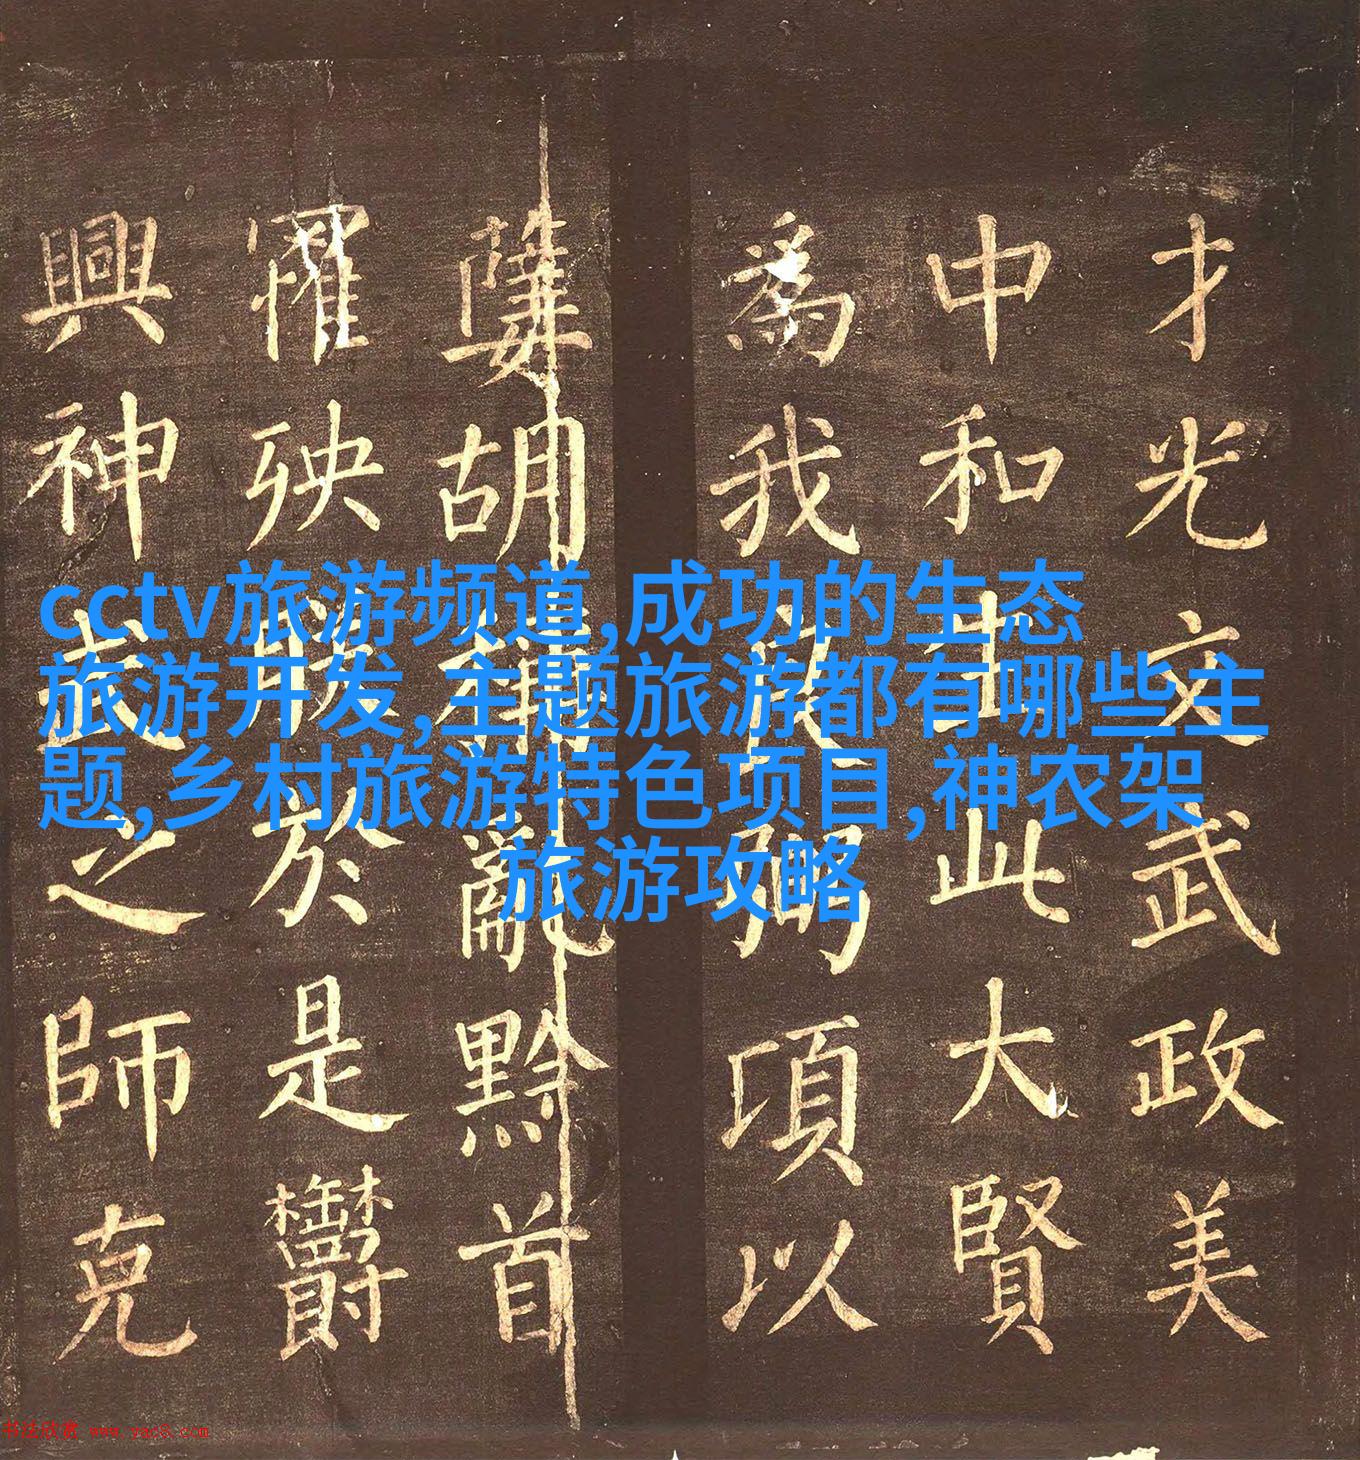 cctv旅游频道,成功的生态
旅游开发,主题旅游都有哪些主
题,乡村旅游特色项目,神农架
旅游攻略
才光文武政美
中和生此大賢
為我良弼項以
孽胡稱亂黔首
罹殃朕於是欝
興神武之師克
书法欣赏 www.yac8.com